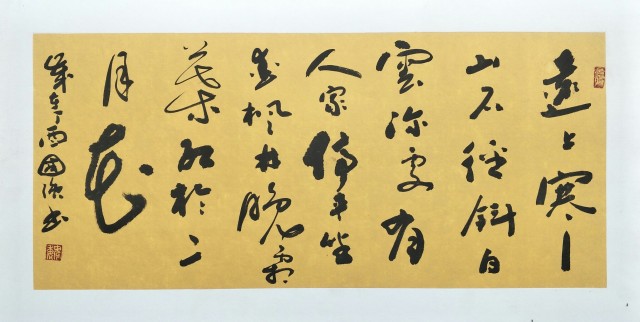 遠上寒
山石徑斜白
雲深處有
人家停車坐
愛楓林晚霜
葉紅於二
月花
歲在丁酉國書